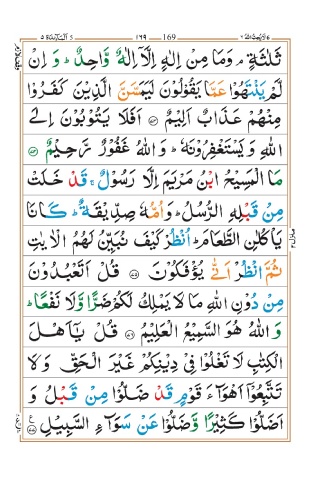 ١٦٩ 169
ثَلٰثَةٍ ۘ وَمَا مِنْ اِلٰهٍ اِلَّاۤ اِلٰهٌ وَّاحِدٌ ؕ وَ اِنْ
لَّمْ يَنْتَهُوْا عَمَّا يَقُوْلُوْنَ لَيَمَسَّنَّ الَّذِيْنَ كَفَرُوْا
مِنْهُمْ عَذَابٌ اَلِيْمٌ ﴿۷۳﴾ اَفَلَا يَتُوْبُوْنَ اِلَى
اللّٰهِ وَيَسْتَغْفِرُوْنَهٗ ؕ وَاللّٰهُ غَفُوْرٌ رَّحِيْمٌ ﴿۷۴﴾
مَا الْمَسِيْحُ ابْنُ مَرْيَمَ اِلَّا رَسُوْلٌ ۚ قَدْ خَلَتْ
مِنْ قَبْلِهِ الرُّسُلُ ؕ وَاُمُّهٗ صِدِّيْقَةٌ ؕ كَانَا
يَاْكُلٰنِ الطَّعَامَ ؕ اُنْظُرْ كَيْفَ نُبَيِّنُ لَهُمُ الْاٰيٰتِ
ثُمَّ انْظُرْ اَنّٰى يُؤْفَكُوْنَ ﴿۷۵﴾ قُلْ اَتَعْبُدُوْنَ
مِنْ دُوْنِ اللّٰهِ مَا لَا يَمْلِكُ لَكُمْ ضَرًّا وَّلَا نَفْعًا ؕ
وَ اللّٰهُ هُوَ السَّمِيْعُ الْعَلِيْمُ ﴿۷۶﴾ قُلْ يٰۤاَهْلَ
الْكِتٰبِ لَا تَغْلُوْا فِىْ دِيْنِكُمْ غَيْرَ الْحَقِّ وَلَا
تَتَّبِعُوْۤا اَهْوَآءَ قَوْمٍ قَدْ ضَلُّوْا مِنْ قَبْلُ وَ
اَضَلُّوْا كَثِيْرًا وَّضَلُّوْا عَنْ سَوَآءِ السَّبِيْلِ ﴿۷۷﴾